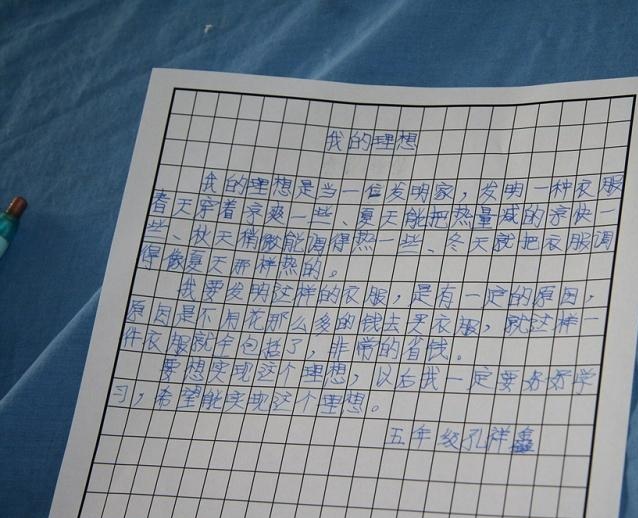 我的理想
我的理想是当一位发明家，发明一种衣服
春天穿着凉爽一些、夏天能把热量减的凉快一
些、秋天稍微能调得热一些、冬天就把衣服调
得像夏天那样热的。
我要发明这样的衣服，是有一定的原因，
原因是不用花那么多的钱去买衣服，就这样一
件衣服就全包括了，非常的省钱。
要想实现这个理想，以后我一定要好好学
习，希望能实现这个理想。
五年级孔祥鑫